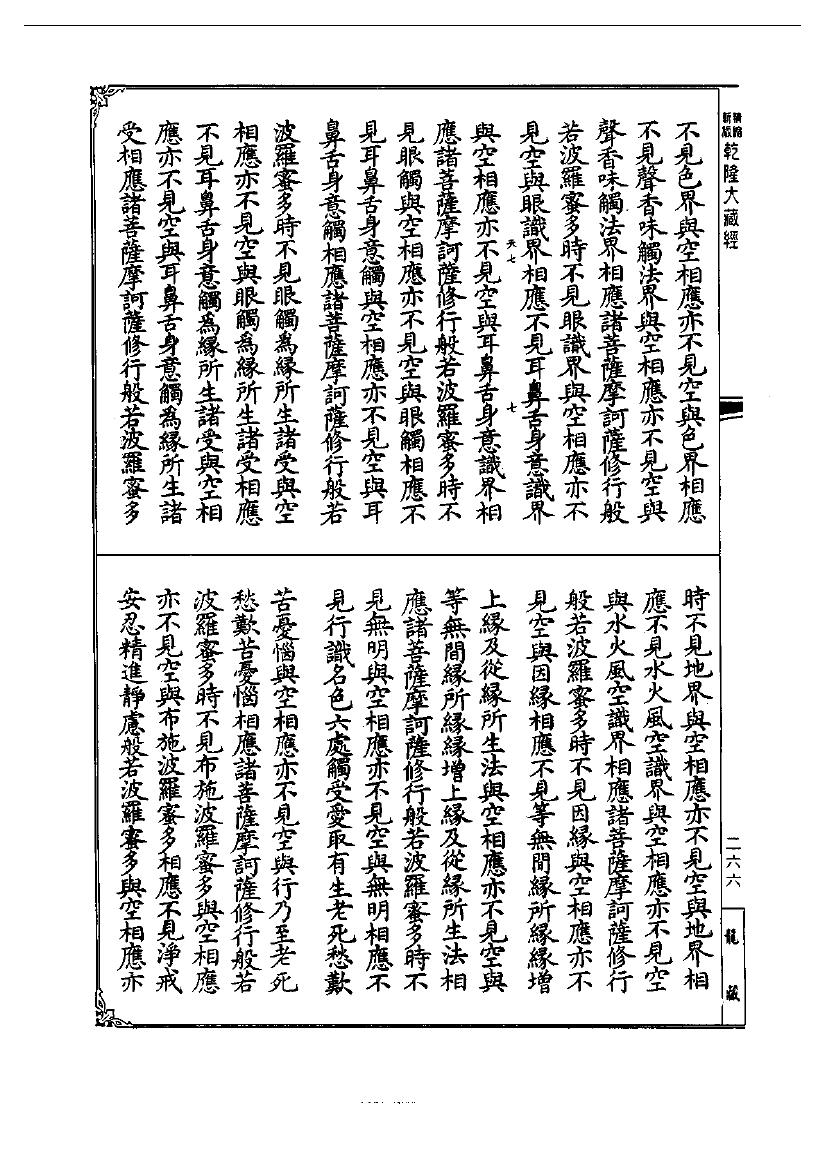 乾隆大藏經
不見色界與空相應亦不見空與色界相應
不見聲香味觸法界與空相應亦不見空與
聲香味觸法界相應諸菩薩摩訶薩修行般
若波羅蜜多時不見眼識界與空相應亦不
見空與眼識界相應不見耳鼻舌身意識界
天七
七
與空相應亦不見空與耳鼻舌身意識界相
應諸菩薩摩訶薩修行般若波羅蜜多時不
見眼觸與空相應亦不見空與眼觸相應不
見耳鼻舌身意觸與空相應亦不見空與耳
鼻舌身意觸相應諸菩薩摩訶薩修行般若
波羅蜜多時不見眼觸為緣所生諸受與空
相應亦不見空與眼觸為緣所生諸受相應
不見耳鼻舌身意觸為緣所生諸受與空相
應亦不見空與耳鼻舌身意觸為緣所生諸
受相應諸菩薩摩訶薩修行般若波羅蜜多
時不見地界與空相應亦不見空與地界相
應不見水火風空識界與空相應亦不見空
與水火風空識界相應諸菩薩摩訶薩修行
般若波羅蜜多時不見因緣與空相應亦不
見空與因緣相應不見等無間緣所緣緣增
上緣及從緣所生法與空相應亦不見空與
等無間緣所緣緣增上緣及從緣所生法相
應諸菩薩摩訶薩修行般若波羅蜜多時不
見無明與空相應亦不見空與無明相應不
見行識名色六處觸受愛取有生老死愁歎
苦憂惱與空相應亦不見空與行乃至老死
愁歎苦憂惱相應諸菩薩摩訶薩修行般若
波羅蜜多時不見布施波羅蜜多與空相應
亦不見空與布施波羅蜜多相應不見淨戒
安忍精進靜慮般若波羅蜜多與空相應亦
二六六
龍藏